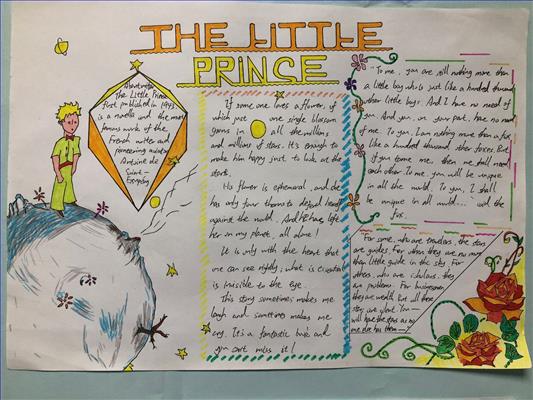 THE LITTLE
PRINCE
About writer
The Little Prince
first published in 1943
is a novella and the most
famous work of the
French writer and
pioneering aviator
Antoine de
Saint-
Exupéry
If some one loves a flower, of
which just one single blossom
grows in all the millions
and millions of stars. It's enough to
make him happy just to look at the
stars.
His flower is ephemeral, and she
has only four thorns to defend herself
against the world. And I have left
her on my planet, all alone!
It is only with the heart that
one can see rightly; what is essential
is invisible to the eye.
This story sometimes makes me
laugh and sometimes makes me
cry. It's a fantastic book and
you can't miss it!
"To me, you are still nothing more than
a little boy who's just like a hundred thousand
other little boys. And I have no need of
you. And you, on your part, have no need
of me. To you, I am nothing more than a fox
like a hundred thousand other foxes. But
if you tame me, then we shall need
each other. To me, you will be unique
in all the world. To you, I shall
be unique in all world...." said the
fox.
"For some, who are travelers, the stars
are guides. For others they are no more
than little guide in the sky. For
others, who are scholars, they
are problems. For businessman,
they are wealth. But all these
stars are silent. You —
will have the stars as no
one else has them —"